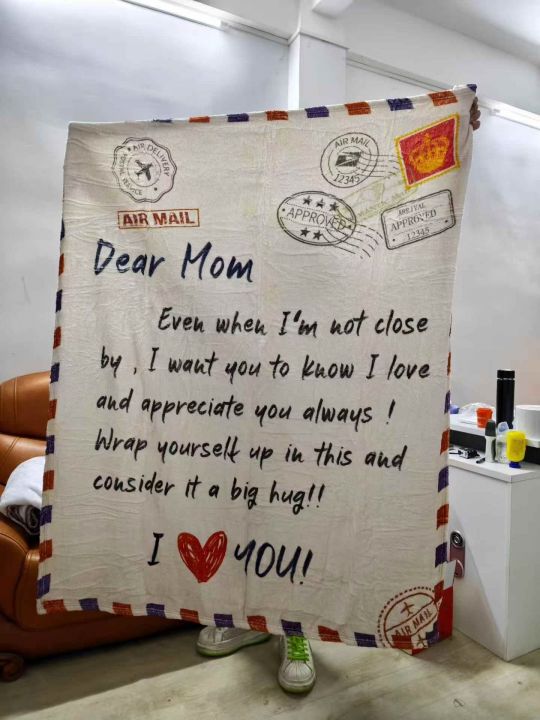 AIR DELIVERY
POSTAL SERVICE
AIR MAIL
12345
APPROVED
ARRIVAL
APPROVED
12345
AIR MAIL
Dear Mom
Even when I'm not close
by , I want you to know I love
and appreciate you always !
Wrap yourself up in this and
consider it a big hug!!
I ❤ YOU!
AIR MAIL